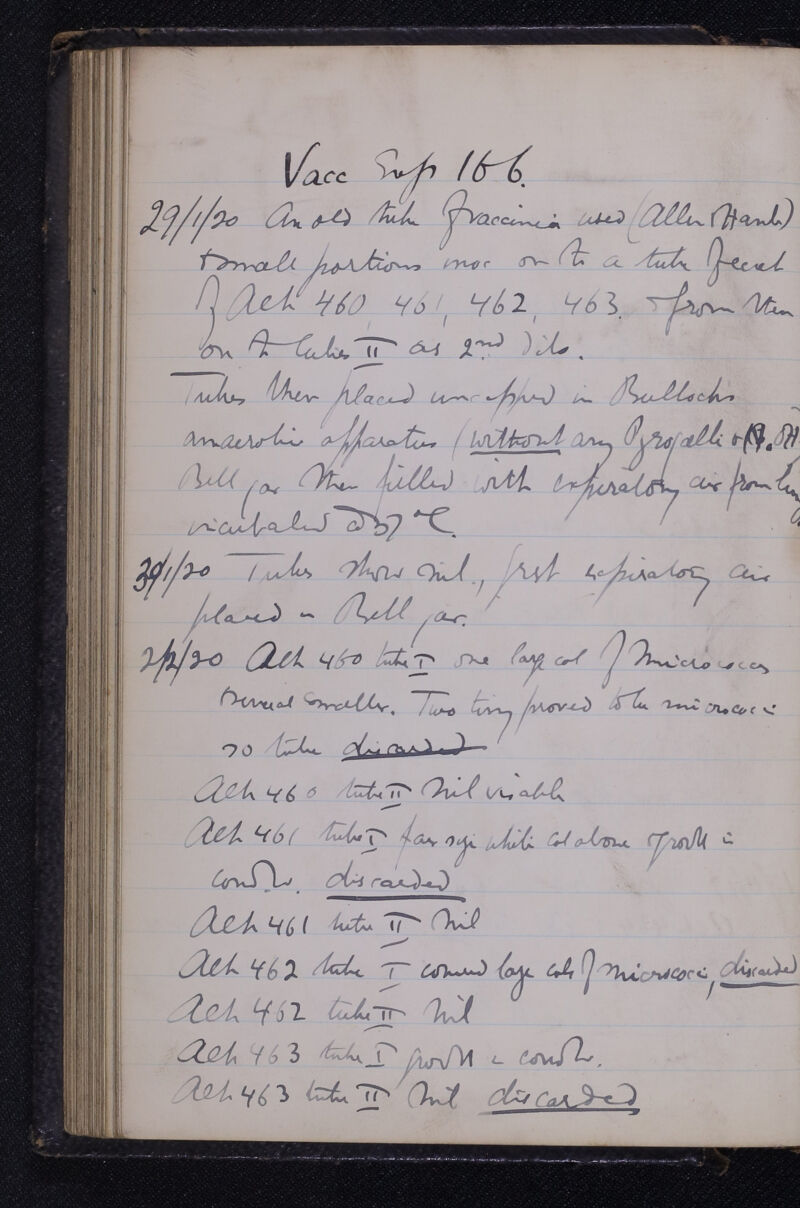 Vacc Exp 166.
29/1/20 An old tube of vaccinia used (Allen & Hanb)
& small portions inoc on to a tube of each
of Ach 460, 461, 462, 463. & from then
on to tubes II as 2nd dils.
Tubes then placed uncapped in Bulloch's
anaerobic apparatus (without any Pyrogallic or
Bell jar then filled with expiratory air from lung
incubated at 37°C.
30/1/20 Tubes show nil., fresh expiratory air
placed in Bell jar.
2/2/20 Ach 460 tube I one large col of Micrococcus
several smaller. Two tiny proved to be micrococci
so tube discarded
Ach 460 tube II Nil visible
Ach 461 tube I white col above growth in
cond. discarded
Ach 461 tube II Nil
Ach 462 tube I large cols of micrococci, discarded
Ach 462 tube II Nil
Ach 463 tube I growth in
Ach 463 tube II Nil discarded